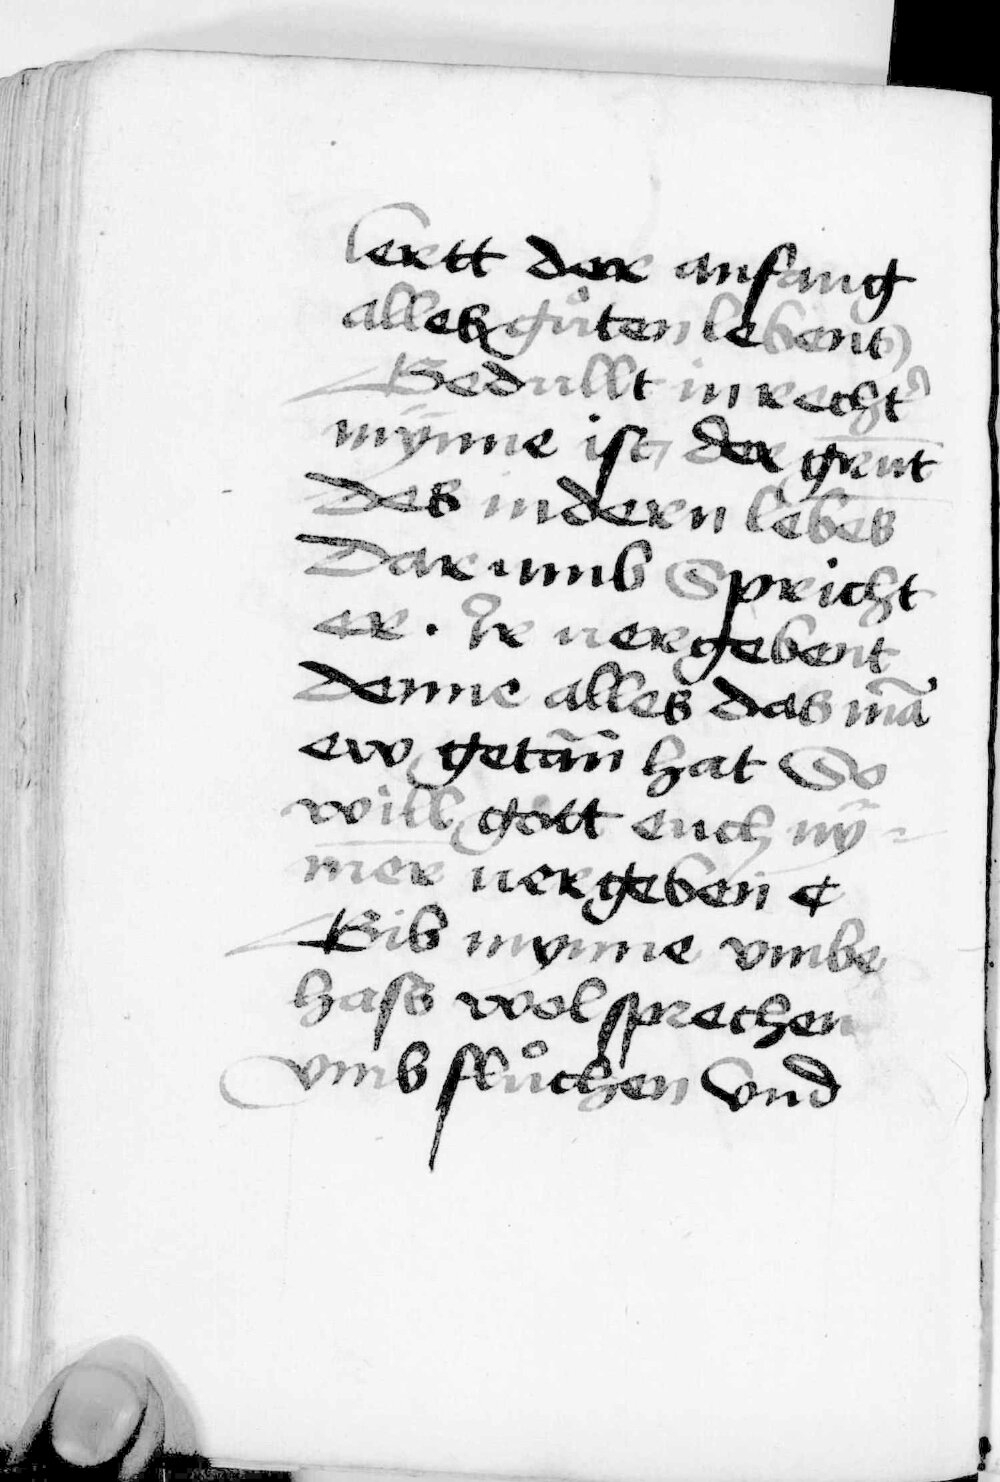 lertt der anfang
alles guͦten lebens
Gedullt in recht᾽
mÿnne ist der grūt
des indern lebēs
Dar umb Spricht
er . Ir uergebent
denne alles das mā
ew getān hat So
will gott euch nÿ=
mer uergeben ¢
Gib mynne vmbe
hass wol sprechen
vmb fluͦchen Vnd